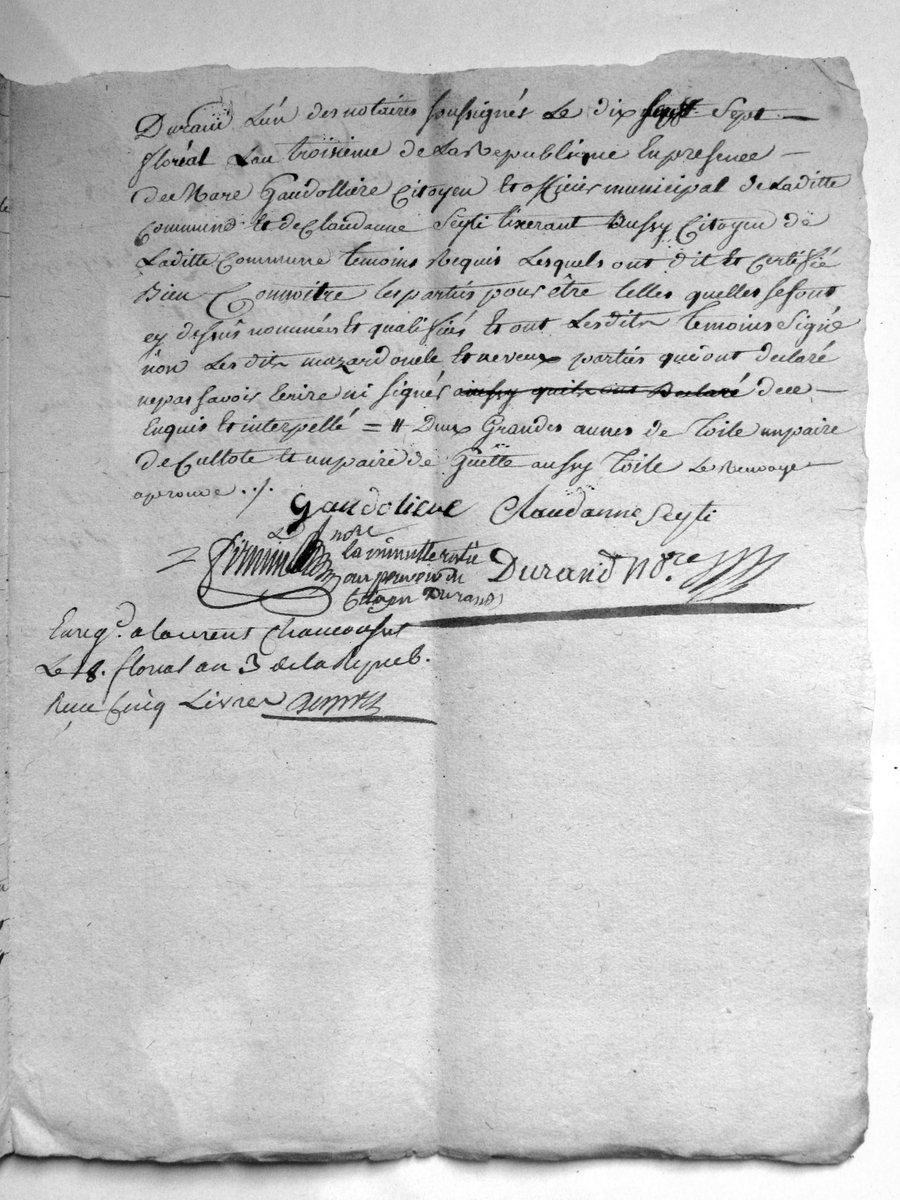 Durand L'un des notaires soussignés Le dix Sept
floréal L'an troisieme de La Republique En presence
de Marc Gaudolliere Citoyen Et officier municipal de Laditte
Commune Et de Claudanne Seyti Bussy Citoyen de
Laditte Commune temoins Requis Lesquels ont dit Et Certifié
Bien Connoitre les parties pour être telles quelles se sont
cy dessus nommées Et qualifiées Et ont Lesdits temoins Signé
non Lesdits mazard oncle Et neveux parties qui ont declaré
ne pas savoir Ecrire ni signer aussy quils ont Declaré de ce
Enquis Et interpellé = # Deux Grandes aunes de toile un paire
de Cullote Et un paire de Guette aussy toile Le Renvoye
aprouvé ./.
Gaudoliere Claudanne Seyti
nore
la minutte restée
au pouvoir du
Citoyen Durand
Durand Nore
Enreg. a laurent Chamousset
Le 18. floreal an 3 de la Repueb.
Reçu Cinq Livres